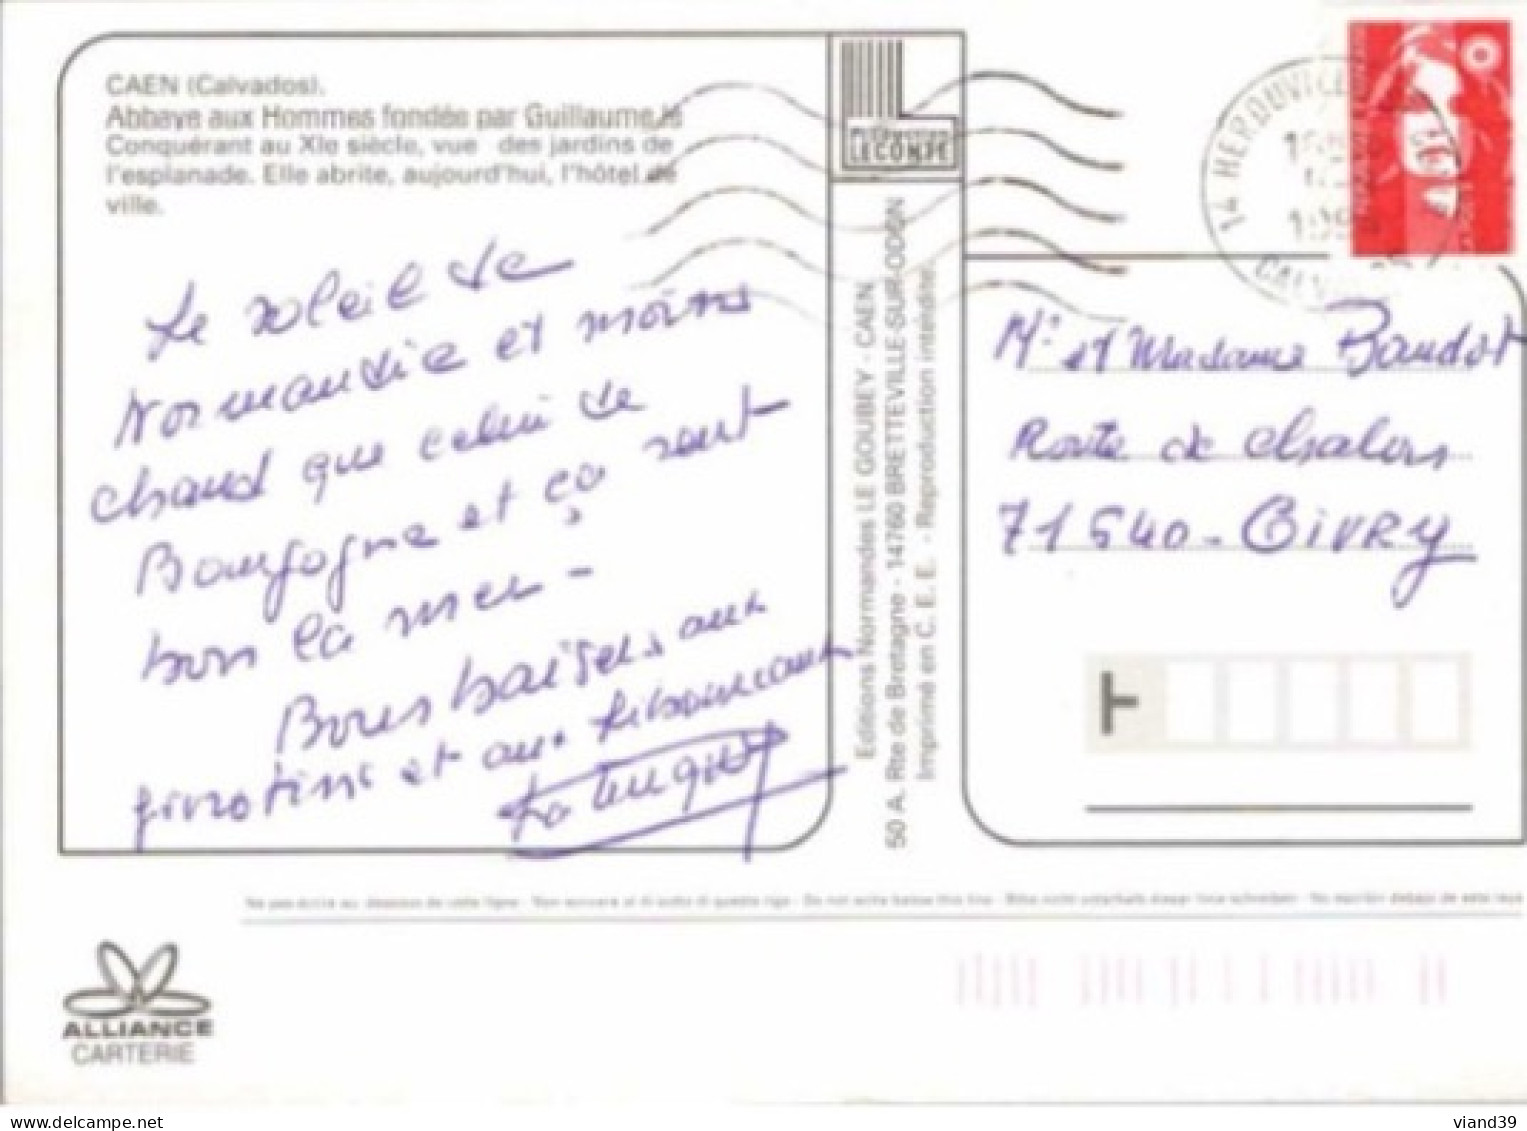 CAEN (Calvados).
Abbaye aux Hommes fondée par Guillaume le
Conquérant au XIe siècle, vue des jardins de
l'esplanade. Elle abrite, aujourd'hui, l'hôtel de
ville.
Le soleil de
Normandie est moins
chaud que celui de
Bourgogne et ça sent
bon la mer -
Bons baisers aux
givrotins et aux
LECONTE
Editions Normandes LE GOUBEY - CAEN
50 A. Rte de Bretagne - 14760 BRETTEVILLE-SUR-ODON
Imprimé en C. E. E. - Reproduction interdite.
14 HEROUVILLE
CALVADOS
Mr et Madame Baudot
Route de Chalon
71640 - GIVRY
Ne pas écrire au dessous de cette ligne - Non scrivere al di sotto di questa riga - Do not write below this line - Bitte nicht unterhalb dieser linie schreiben - No escribir debajo de esta raya
ALLIANCE
CARTERIE
viand39